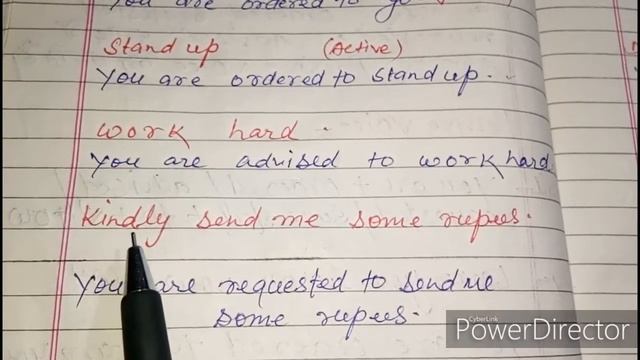 You are ordered to go
Stand up (Active)
You are ordered to stand up.
work hard
You are advised to work hard
Kindly send me some rupees.
You are requested to send me
some rupees.
CyberLink
PowerDirector